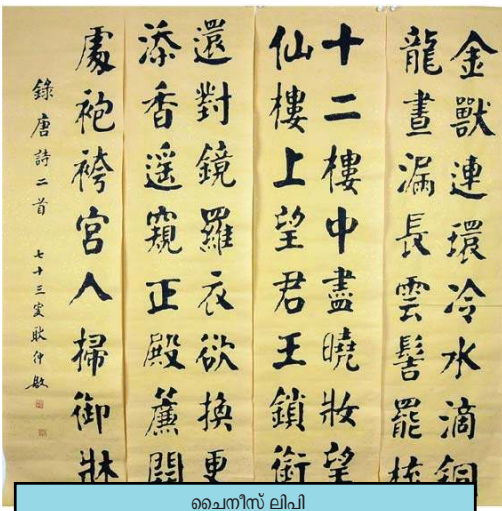 金獸連環冷水滴銅
龍晝漏長雲髻罷梳
十二樓中盡曉妝望
仙樓上望君王鎖銜
還對鏡羅衣欲換更
添香遥窺正殿簾開
處袍袴宮人掃御牀
錄唐詩二首 七十三叟耿仲敏
ചൈനീസ് ലിപി